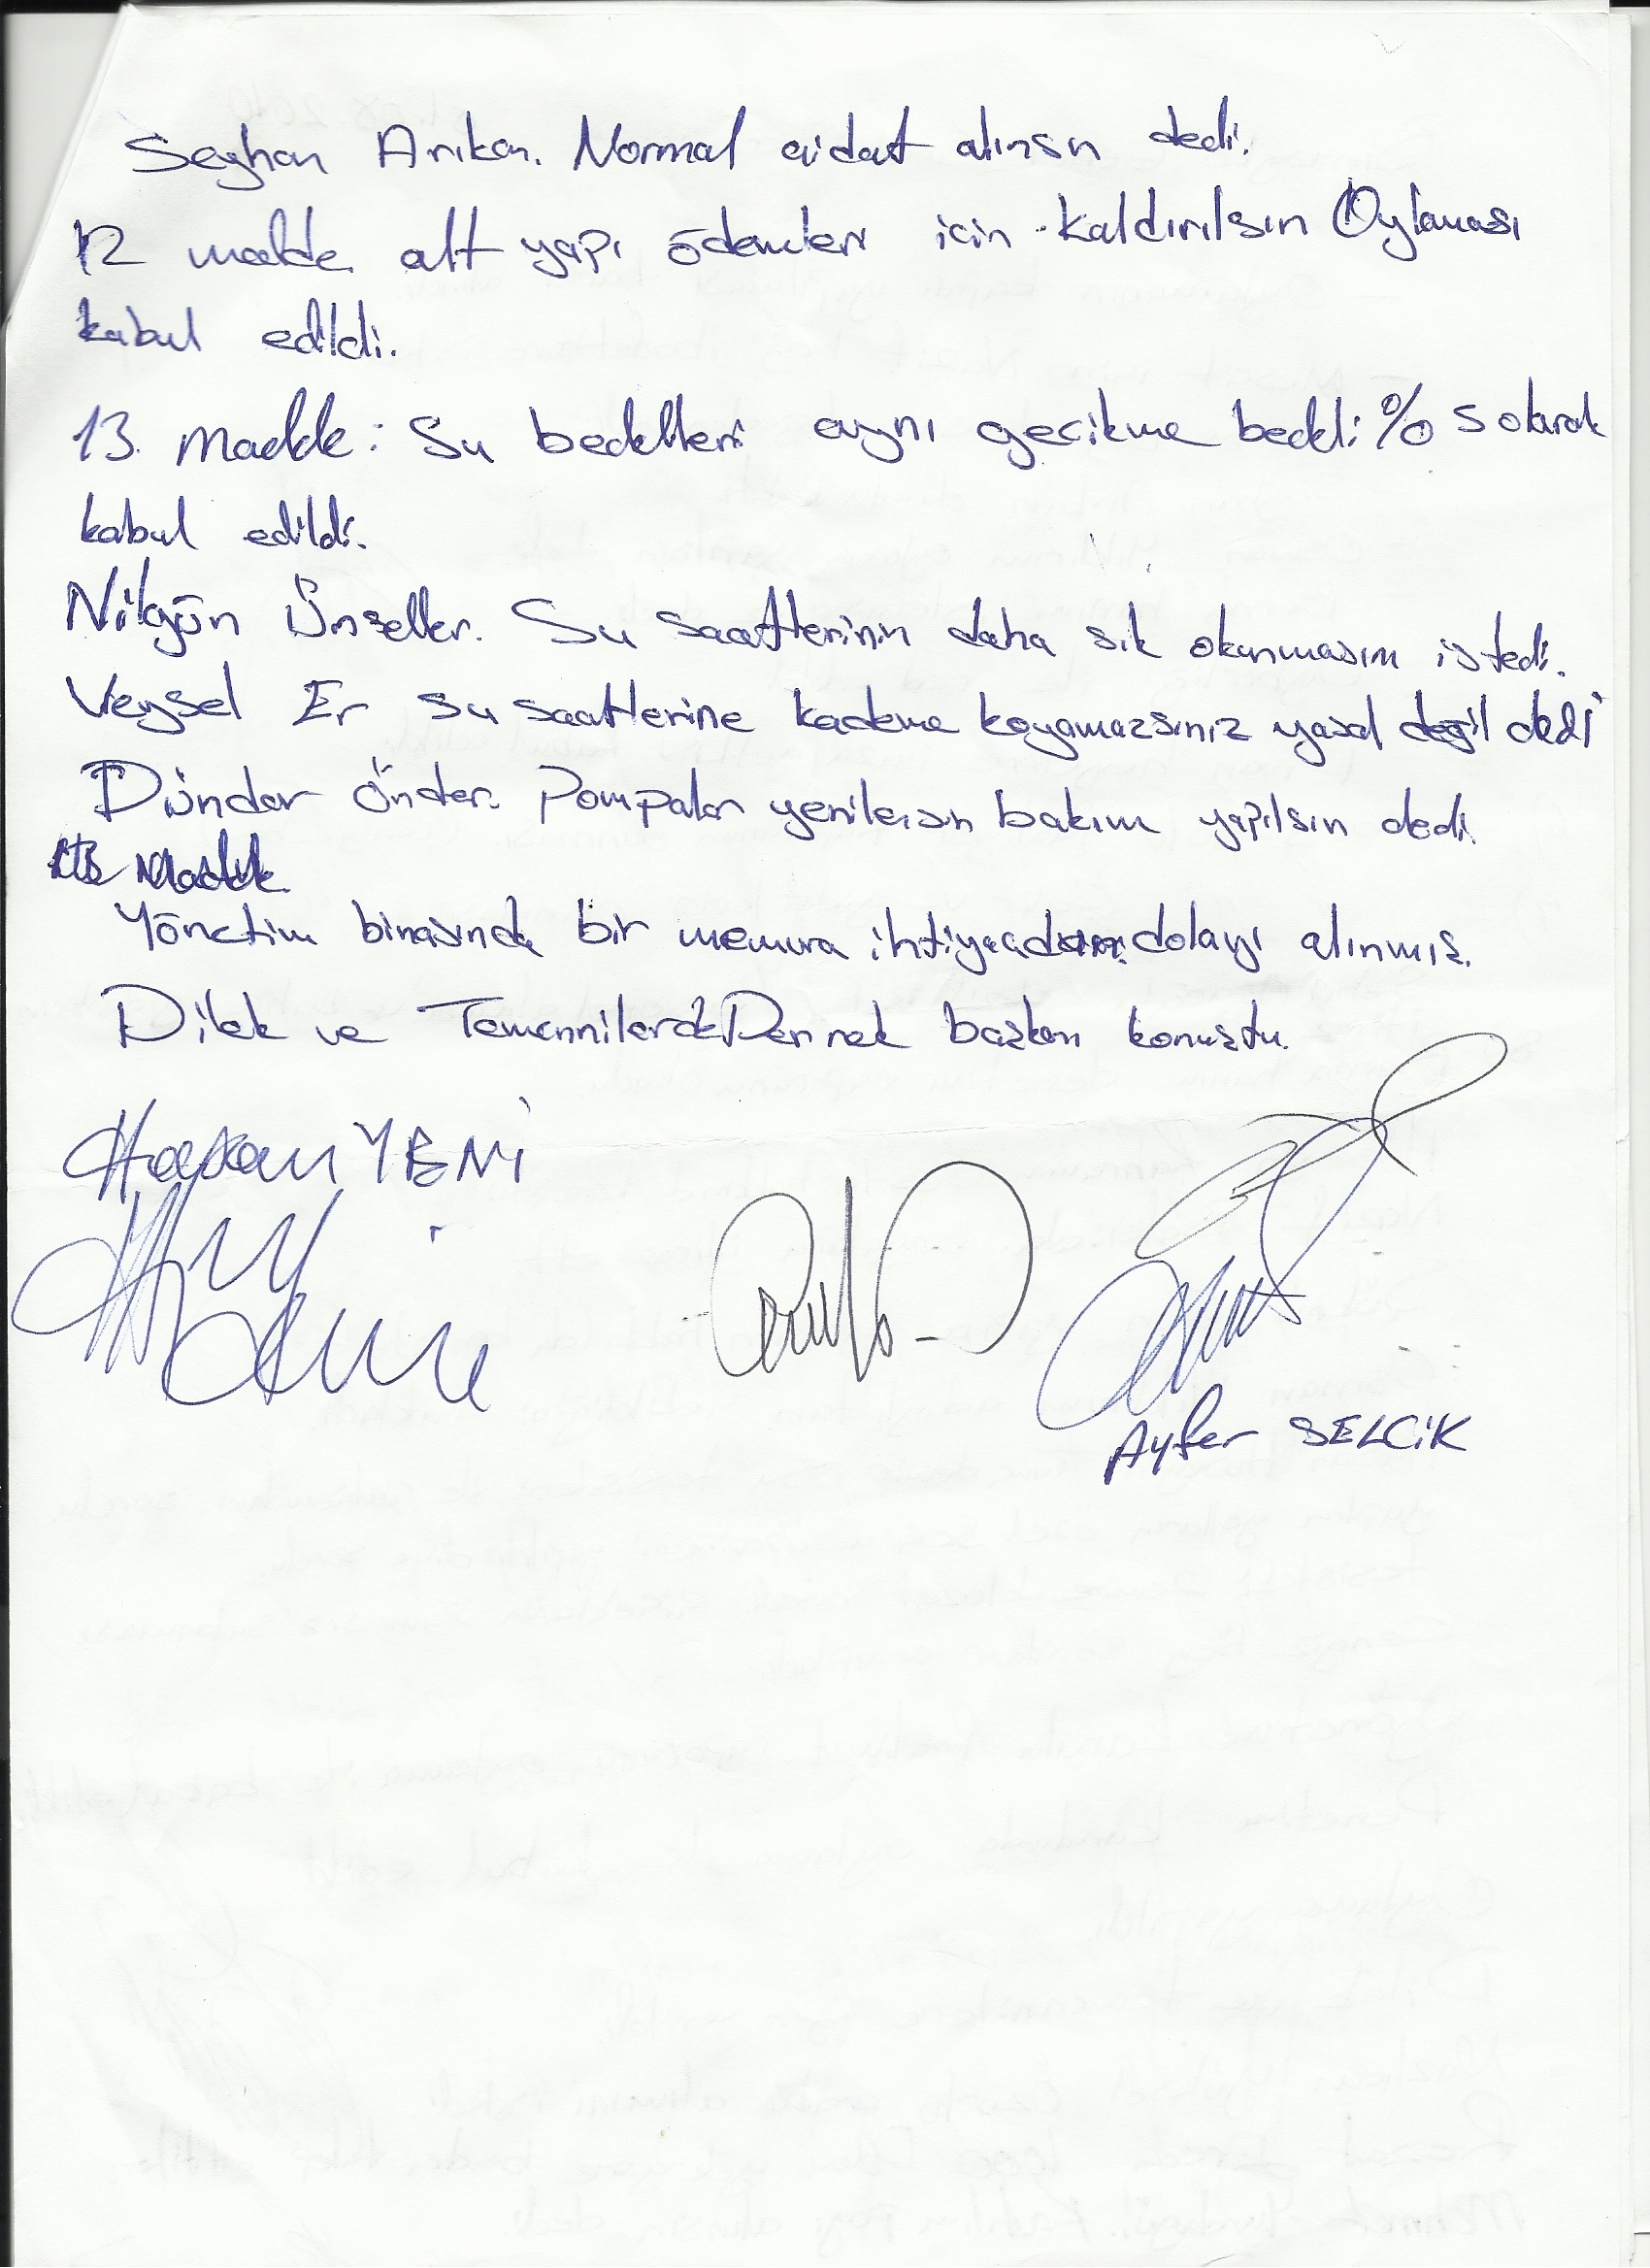 Seyhan Arıkan. Normal aidat alınsın dedi.
12 madde alt yapı ödemeleri için kaldırılsın Oylaması
kabul edildi.
13. Madde: Su bedelleri aynı gecikme bedeli % 5 olarak
kabul edildi.
Nilgün Ünseller. Su saatlerinin daha sık okunmasını istedi.
Veysel Er su saatlerine kademe koyamazsınız yasal değil dedi
Dündar Önder. Pompalar yenilensin bakım yapılsın dedi.
Madde
Yönetim binasında bir memura ihtiyacdan dolayı alınmış.
Dilek ve Temennilerde Dernek başkanı konuştu.
Hakan YENİ
Ayfer SELCİK